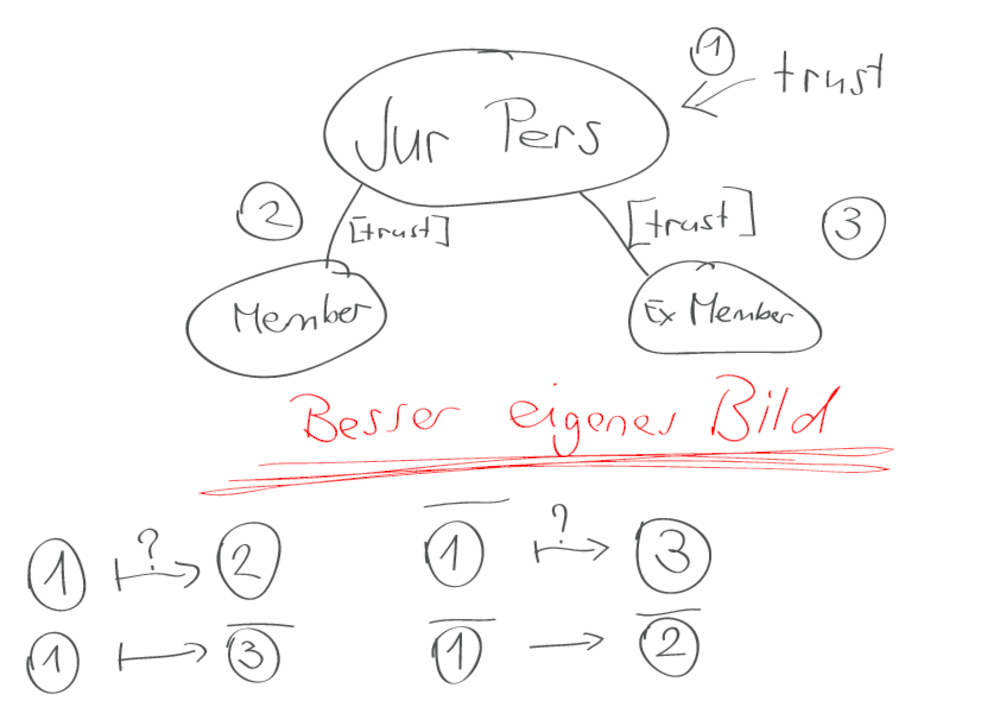 1 trust
Jur Pers
2 [trust] [trust] 3
Member Ex Member
Besser eigenes Bild
1 ? 2 1 ? 3
1 3 1 2